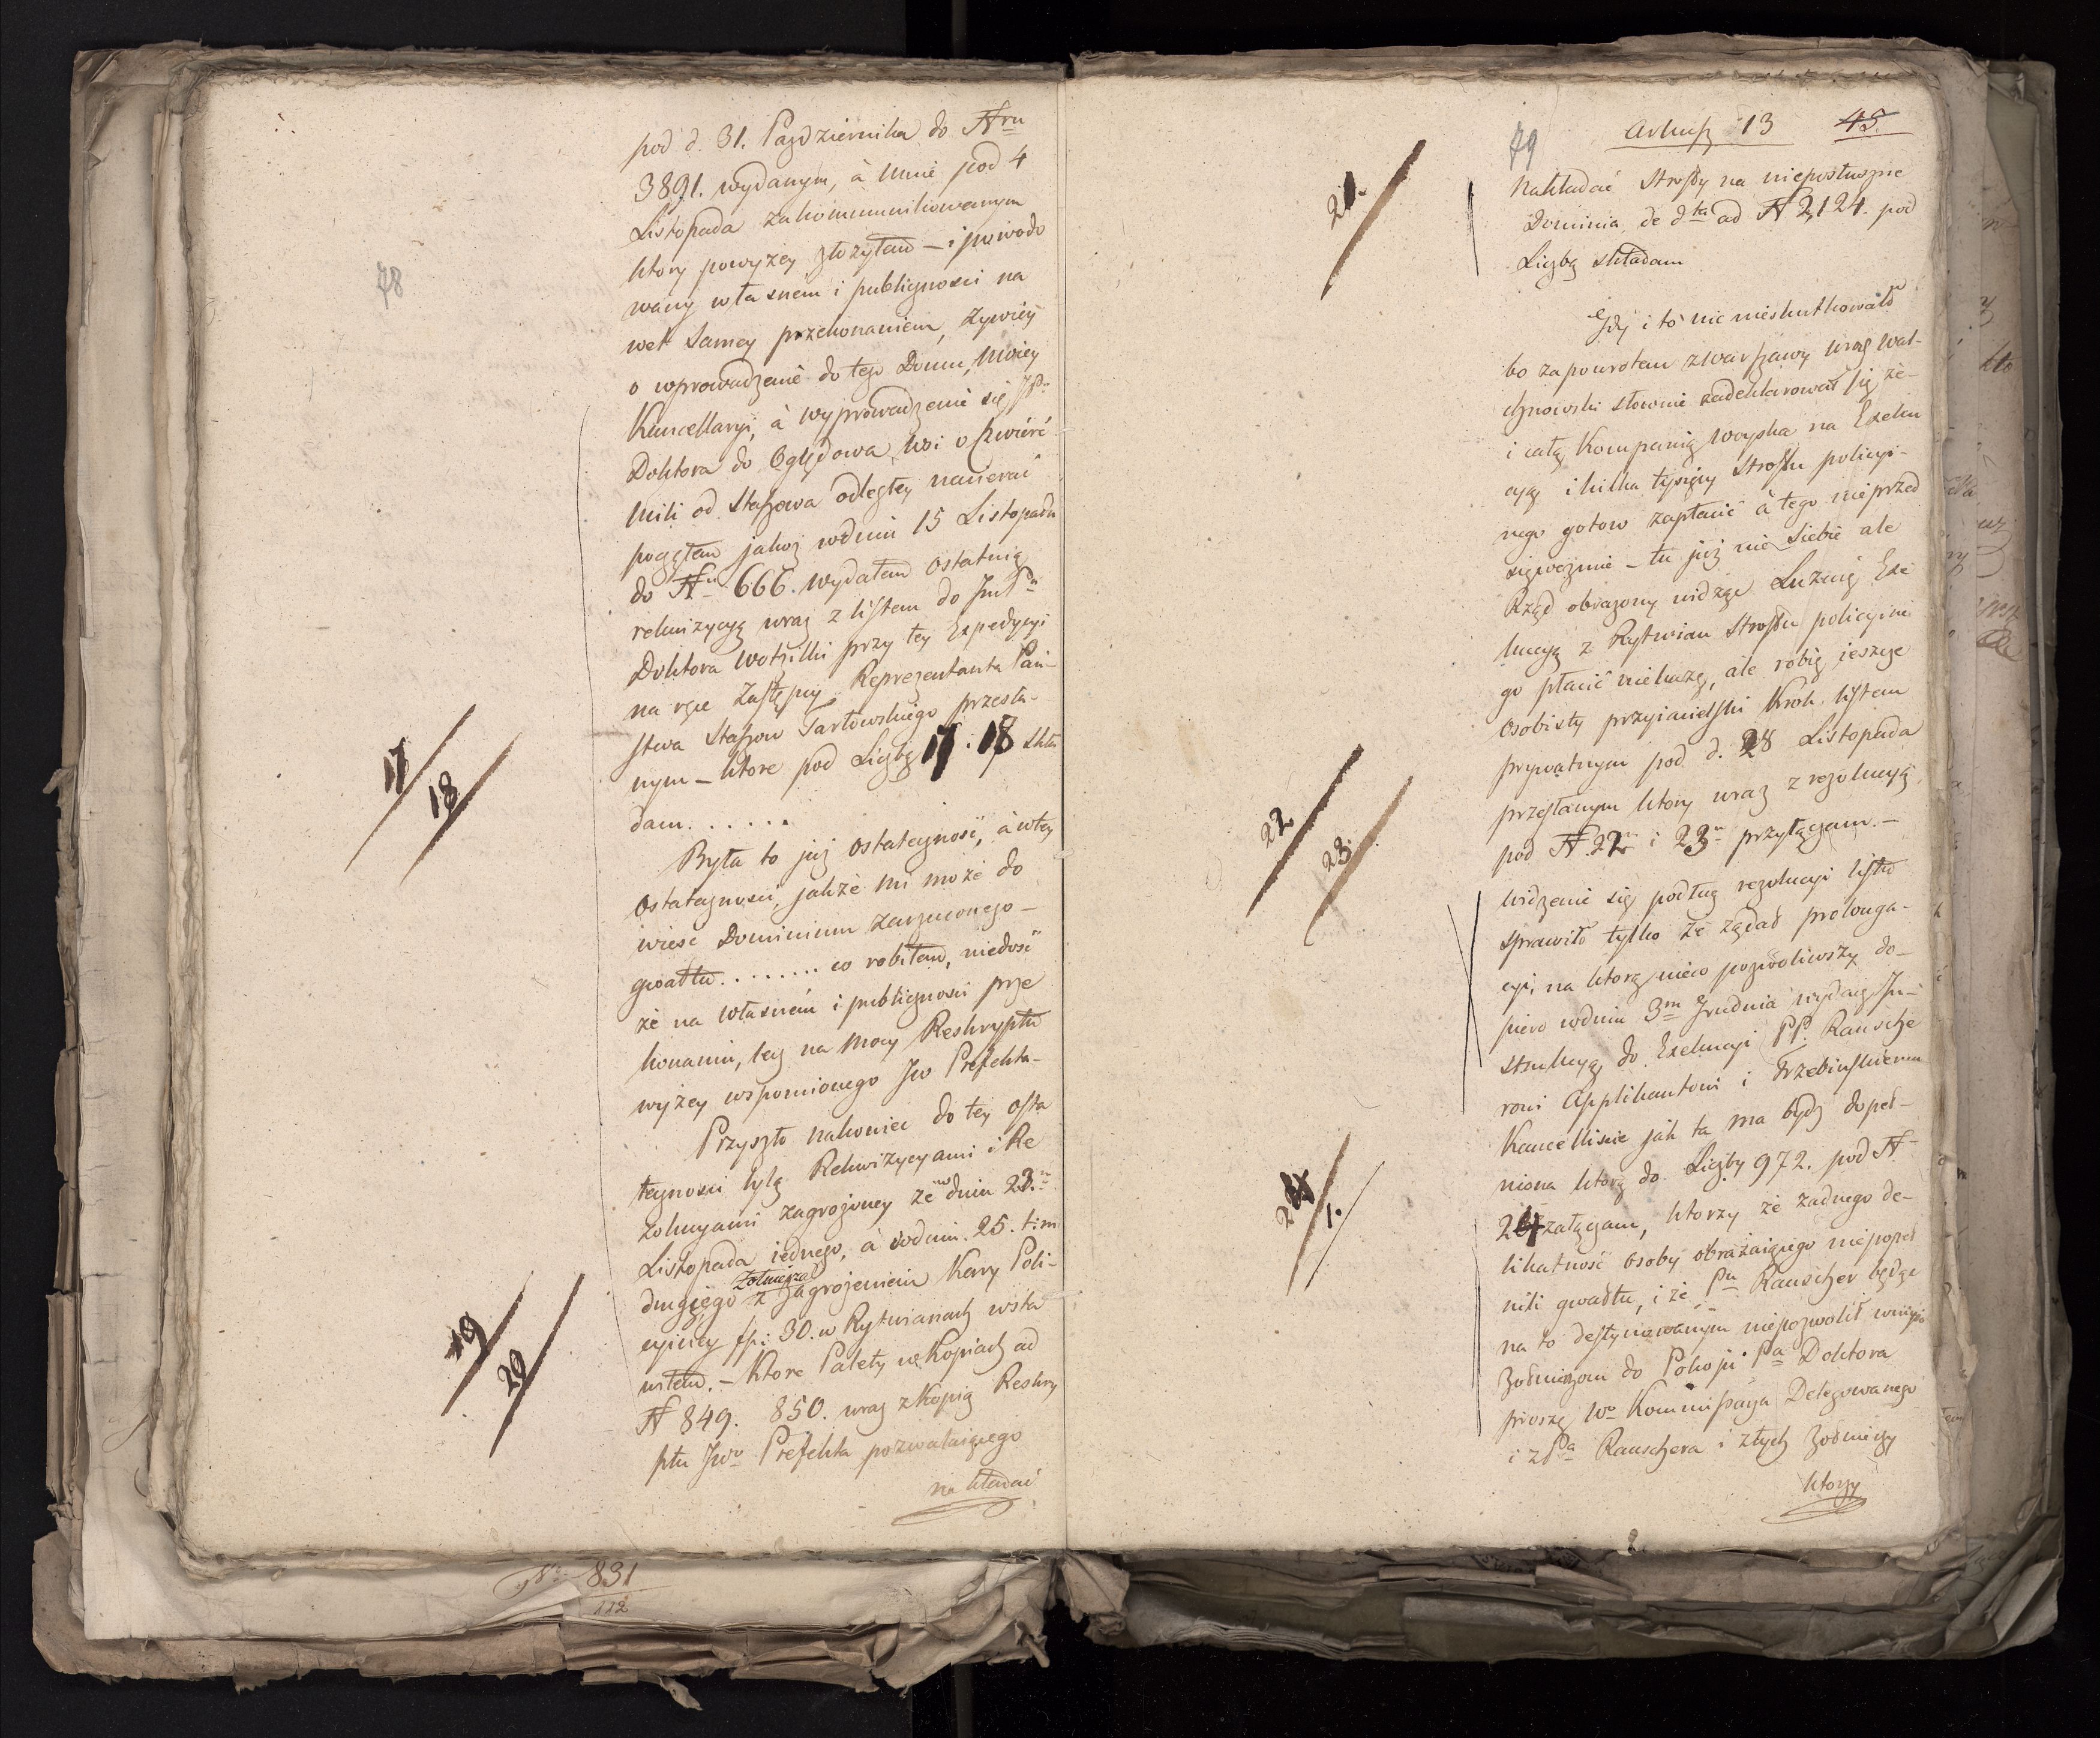 78
pod d. 31. Pazdziernika do Nru
3891. wydanym, à Mnie pod 4
Listopada zakommunikowanym
ktory powyżey złożyłem — i powodo
wany własnem i publiczności na
wet samey przekonaniem, żywiey
o wprowadzenie do tego Domu, Moiey
Kancellaryi, à wyprowadzenie się JP
Doktora do Oględowa wsi o ćwierć
Mili od Staszowa odległey nacierać
począłem jakoż w dniu 15 Listopada
do Nu 666. wydałem ostatnią
rekwizycyą wraz z listem do JmP
Doktora Wotzilki przy tey Expedycyi
na ręce Zastępcy Reprezentanta Pań-
stwa Staszow Tarłowskiego przesła-
nym — ktore pod Liczbą 17. 18 Skła
dam. . . . . .
17
18
Była to już ostateczność, à w tey
ostateczności, jakże mi może do
wieść Dominium zarzuconego —
gwałtu. . . . . . . . co robiłem, niedość
że na własnem i publiczności prze
konaniu, lecz na mocy Reskryptu
wyżey wspomionego Jw Prefekta —
Przyszło nakoniec do tey osta
teczności tylą Rekwizycyami i Re
zolucyami zagrożoney że w dniu 23.
Listopada iednego, à w dniu 25. t: m
drugiego Zołnierza z zagrożeniem Kary Poli-
cyiney fp: 30. w Rytwianach wsta
wiłem. — Ktore Palety w Kopiach ad
N 849. 850. wraz z Kopią Reskry
ptu Jw Prefekta pozwalaiącego
nakładać
19
20
No 831
112
79
Arkusz 13
45
nakładać Strofy na nieposłuszne
Dominia, de dta ad N 2,124. pod
Liczbą składam
21.
Gdy i to nic nieskutkowało
bo za powrotem z Warszawy wraz Wal-
chnowski słownie zadeklarował się że —
i całą Kompanią woyska na Exeku
cyą i kilka tysięcy Strofu policyi-
nego gotow zapłacić à tego nieprzed
sięweźmie — tu już nie Siebie ale
Rząd obrażony widząc Luzuię Exe
kucyą z Rytwian Strofu policyine
go płacić niekażę, ale robię ieszcze
osobisty przyiacielski krok listem
prywatnym pod d. 28 Listopada
przesłanym ktory wraz z rezolucyą
pod N. 22 i 23 przyłączam. —
22
23.
widzenie się podług rezolucyi listu
sprawiło tylko że żądał prolonga-
cyi, na ktorą nieco pozwoliwszy do-
piero w dniu 3m Grudnia wydaię In-
strukcyą do Exekucyi PP. Rausche
rowi Applikantowi i Trzebińskiemu
Kancelliście jak ta ma bydź dopeł-
niona ktorą do Liczby 972. pod N
24 załączam, ktorzy że żadnego de-
likatność osoby obrażaiącego niepopeł
nili gwałtu, i że Pn Rauscher będąc
na to destynowanym niepozwolił wniyść
Zołnierzom do Pokoju Pa Doktora
proszę Wo Kommissarza Delegowanego
i z Pa Rauschera i z tych Zołnierzy
ktorzy
24
1.